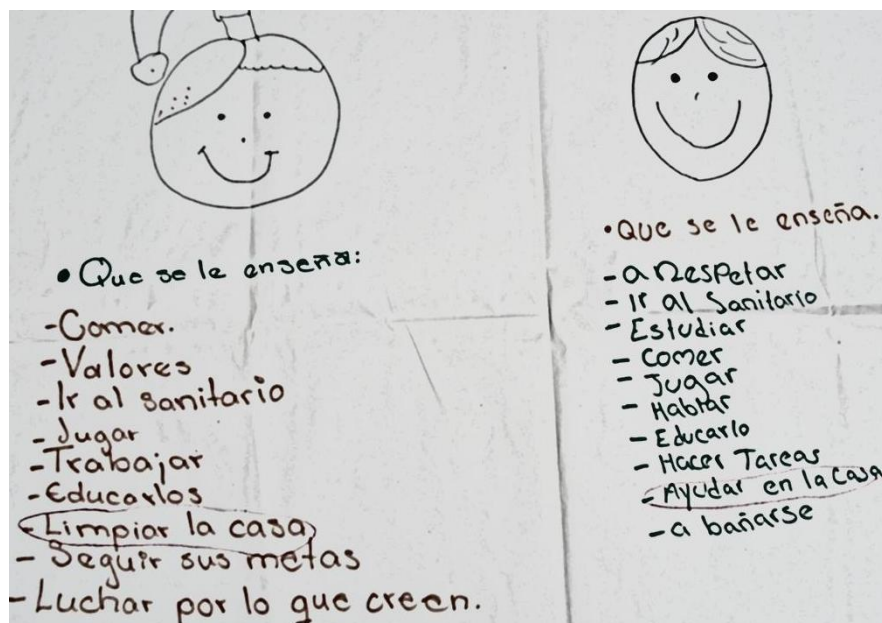 • Que se le enseña:
-Comer.
-Valores
-Ir al sanitario
-Jugar
-Trabajar
-Educarlos
-Limpiar la casa
- Seguir sus metas
-Luchar por lo que creen.
•Que se le enseña.
-a Respetar
- Ir al Sanitario
- Estudiar
- Comer
- Jugar
- Hablar
- Educarlo
- Hacer Tareas
- Ayudar en la Casa
- a bañarse